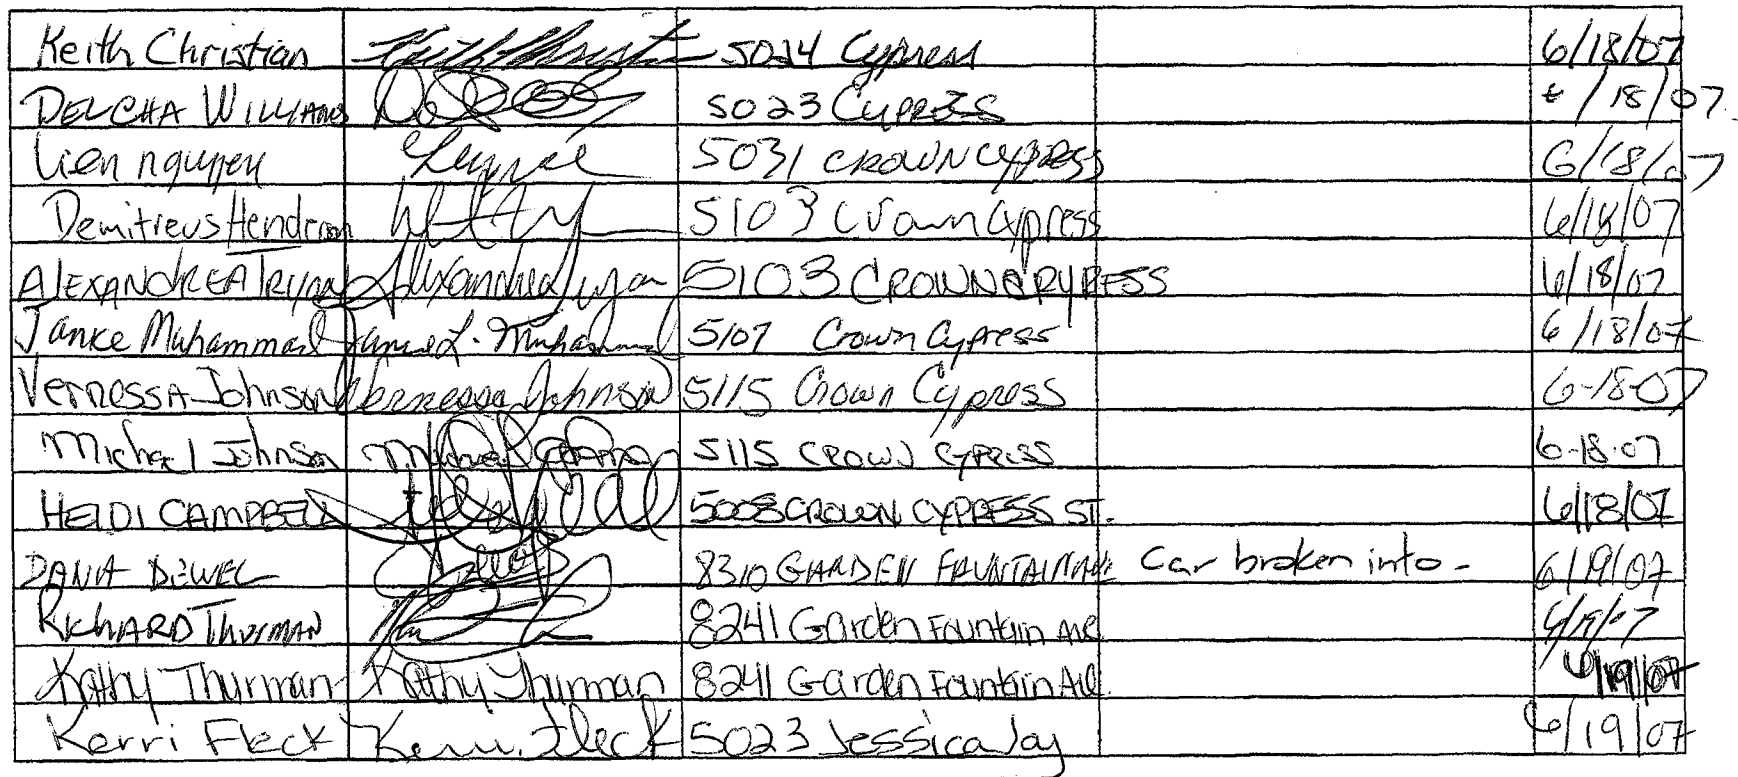 Keith Christian Keith Christian 5024 Cypress 6/18/07
DELCHA WILLIAMS 5023 CYPRESS 6/18/07
Lien nguyen 5031 CROWN CYPRESS 6/18/07
Demitreus Henderson 5103 Crown Cypress 6/18/07
ALEXANDREA TRYON Alexandrea Tryon 5103 CROWN CRYPRESS 6/18/07
Janice Muhammad Janice L. Muhammad 5107 Crown Cypress 6/18/07
VernessA Johnson Vernessa Johnson 5115 Crown Cypress 6-18-07
Michael Johnson Michael Johnson 5115 CROWN CYPRESS 6-18-07
HEIDI CAMPBELL 5008 CROWN CYPRESS ST. 6/18/07
DANA DEWEL 8310 GARDEN FOUNTAIN AVE Car broken into - 6/19/07
RICHARD THURMAN 8241 Garden Fountain Ave. 6/19/07
Kathy Thurman Kathy Thurman 8241 Garden Fountain Ave. 6/19/07
Kerri Fleck Kerri Fleck 5023 Jessica Joy 6/19/07